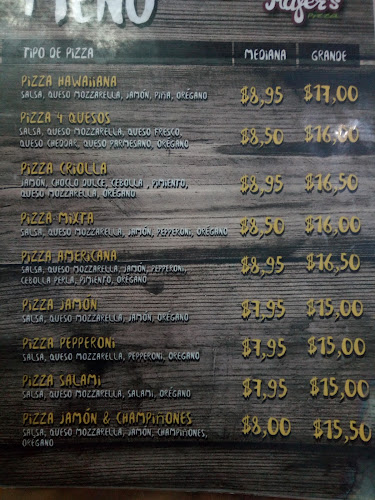 MENÚ
Hafer's
Pizza
TIPO DE PIZZA MEDIANA GRANDE
PIZZA HAWAIIANA
SALSA, QUESO MOZZARELLA, JAMÓN, PIÑA, ORÉGANO $8,95 $17,00
PIZZA 4 QUESOS
SALSA, QUESO MOZZARELLA, QUESO FRESCO,
QUESO CHEDDAR, QUESO PARMESANO, ORÉGANO $8,50 $16,00
PIZZA CRIOLLA
JAMÓN, CHOCLO DULCE, CEBOLLA , PIMIENTO,
QUESO MOZZARELLA, ORÉGANO $8,95 $16,50
PIZZA MIXTA
SALSA, QUESO MOZZARELLA, JAMÓN, PEPPERONI, ORÉGANO $8,50 $16,00
PIZZA AMERICANA
SALSA, QUESO MOZZARELLA, JAMÓN, PEPPERONI,
CEBOLLA PERLA, PIMIENTO, ORÉGANO $8,95 $16,50
PIZZA JAMÓN
SALSA, QUESO MOZZARELLA, JAMÓN, ORÉGANO $7,95 $15,00
PIZZA PEPPERONI
SALSA, QUESO MOZZARELLA, PEPPERONI, ORÉGANO $7,95 $15,00
PIZZA SALAMI
SALSA, QUESO MOZZARELLA, SALAMI, ORÉGANO $7,95 $15,00
PIZZA JAMÓN & CHAMPIÑONES
SALSA, QUESO MOZZARELLA, JAMÓN, CHAMPIÑONES,
ORÉGANO $8,00 $15,50